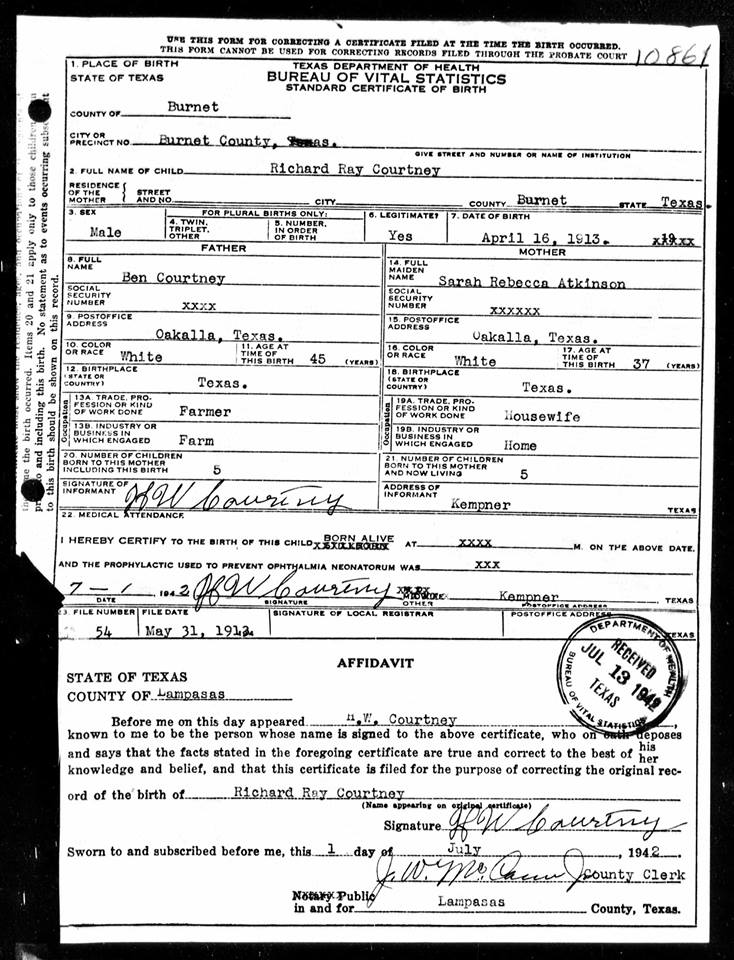 USE THIS FORM FOR CORRECTING A CERTIFICATE FILED AT THE TIME THE BIRTH OCCURRED.
THIS FORM CANNOT BE USED FOR CORRECTING RECORDS FILED THROUGH THE PROBATE COURT
10861
1. PLACE OF BIRTH
STATE OF TEXAS
TEXAS DEPARTMENT OF HEALTH
BUREAU OF VITAL STATISTICS
STANDARD CERTIFICATE OF BIRTH
COUNTY OF Burnet
CITY OR PRECINCT NO. Burnet County, Texas.
GIVE STREET AND NUMBER OR NAME OF INSTITUTION
2. FULL NAME OF CHILD Richard Ray Courtney
RESIDENCE OF THE MOTHER { STREET AND NO. CITY COUNTY Burnet STATE Texas.
3. SEX Male
FOR PLURAL BIRTHS ONLY:
4. TWIN, TRIPLET, OTHER
5. NUMBER, IN ORDER OF BIRTH
6. LEGITIMATE? Yes
7. DATE OF BIRTH April 16, 1913.
FATHER
8. FULL NAME Ben Courtney
SOCIAL SECURITY NUMBER XXXX
9. POSTOFFICE ADDRESS Oakalla, Texas.
10. COLOR OR RACE White
11. AGE AT TIME OF THIS BIRTH 45 (YEARS)
12. BIRTHPLACE (STATE OR COUNTRY) Texas.
Occupation
13A. TRADE, PROFESSION OR KIND OF WORK DONE Farmer
13B. INDUSTRY OR BUSINESS IN WHICH ENGAGED Farm
MOTHER
14. FULL MAIDEN NAME Sarah Rebecca Atkinson
SOCIAL SECURITY NUMBER XXXXXX
15. POSTOFFICE ADDRESS Oakalla, Texas.
16. COLOR OR RACE White
17. AGE AT TIME OF THIS BIRTH 37 (YEARS)
18. BIRTHPLACE (STATE OR COUNTRY) Texas.
Occupation
19A. TRADE, PROFESSION OR KIND OF WORK DONE Housewife
19B. INDUSTRY OR BUSINESS IN WHICH ENGAGED Home
20. NUMBER OF CHILDREN BORN TO THIS MOTHER INCLUDING THIS BIRTH 5
21. NUMBER OF CHILDREN BORN TO THIS MOTHER AND NOW LIVING 5
SIGNATURE OF INFORMANT H W Courtney
ADDRESS OF INFORMANT Kempner TEXAS
22. MEDICAL ATTENDANCE
I HEREBY CERTIFY TO THE BIRTH OF THIS CHILD BORN ALIVE AT XXXX M. ON THE ABOVE DATE.
AND THE PROPHYLACTIC USED TO PREVENT OPHTHALMIA NEONATORUM WAS XXX
7-1 1942 H W Courtney MIDWIFE OTHER Kempner TEXAS
DATE SIGNATURE POSTOFFICE ADDRESS
23. FILE NUMBER 54
FILE DATE May 31, 1913.
SIGNATURE OF LOCAL REGISTRAR
POSTOFFICE ADDRESS TEXAS
DEPARTMENT OF HEALTH
RECEIVED
JUL 13 1942
TEXAS
BUREAU OF VITAL STATISTICS
AFFIDAVIT
STATE OF TEXAS
COUNTY OF Lampasas
Before me on this day appeared H.W. Courtney,
known to me to be the person whose name is signed to the above certificate, who on oath deposes
and says that the facts stated in the foregoing certificate are true and correct to the best of his her
knowledge and belief, and that this certificate is filed for the purpose of correcting the original rec-
ord of the birth of Richard Ray Courtney
(Name appearing on original certificate)
Signature H W Courtney
Sworn to and subscribed before me, this 1 day of July, 1942.
J. W. McCann Jr County Clerk
Notary Public
in and for Lampasas County, Texas.
apply only to those children
and including this birth. No statement as to events occurring subse
to this birth should be shown on this record.
the birth occurred. Items 20 and 21